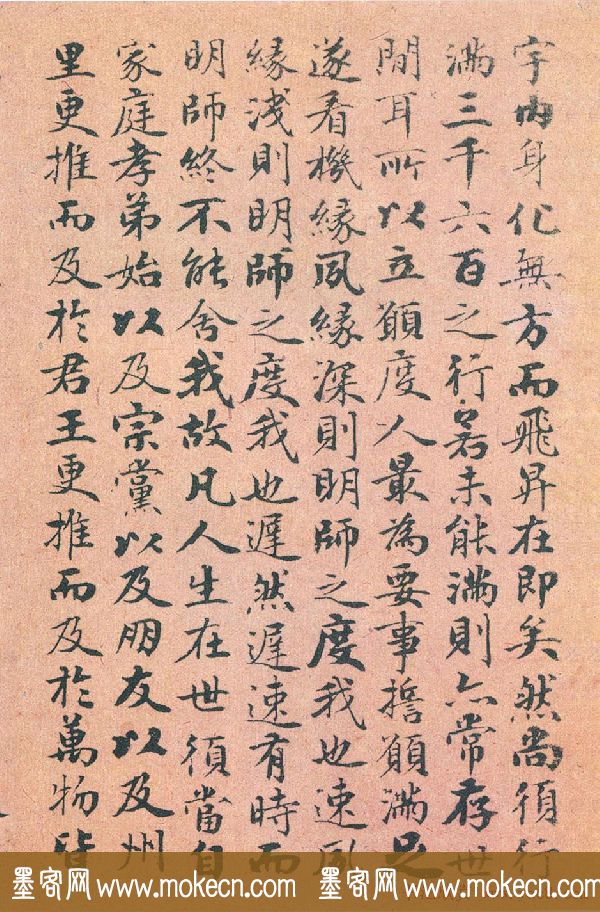 宇内身化無方而飛昇在即矣然尚須行
滿三千六百之行若未能滿則亦常存世
間耳所以立願度人最為要事擔願滿足
遂看機緣夙緣深則明師之度我也速夙
緣淺則明師之度我也遲然遲速有時而
明師終不能舍我故凡人生在世須當自
家庭孝弟始以及宗黨以及朋友以及州
里更推而及於君王更推而及於萬物皆
墨客网 www.mokecn.com 墨客网 www.mokecn.com